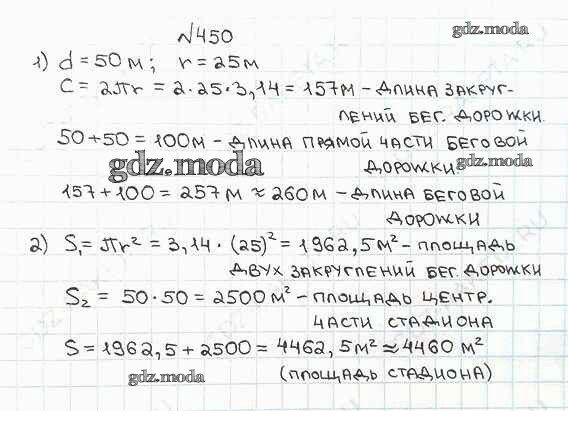 №450
gdz.moda
1) d = 50 м; r = 25 м
C = 2πr = 2·25·3,14 = 157 м - ДЛИНА ЗАКРУГ-
ЛЕНИЙ БЕГ. ДОРОЖКИ.
50 + 50 = 100 м - ДЛИНА ПРЯМОЙ ЧАСТИ БЕГОВОЙ
gdz.moda ДОРОЖКИ. gdz.moda
157 + 100 = 257 м ≈ 260 м - ДЛИНА БЕГОВОЙ
ДОРОЖКИ
2) S₁ = πr² = 3,14 · (25)² = 1962,5 м² - ПЛОЩАДЬ
ДВУХ ЗАКРУГЛЕНИЙ БЕГ. ДОРОЖКИ
S₂ = 50·50 = 2500 м² - ПЛОЩАДЬ ЦЕНТР.
ЧАСТИ СТАДИОНА
S = 1962,5 + 2500 = 4462,5 м² ≈ 4460 м²
gdz.moda (ПЛОЩАДЬ СТАДИОНА)